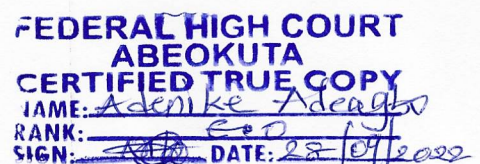 FEDERAL HIGH COURT
ABEOKUTA
CERTIFIED TRUE COPY
NAME: Adenike Adeagbo
RANK: E.O
SIGN: DATE: 28/09/2022